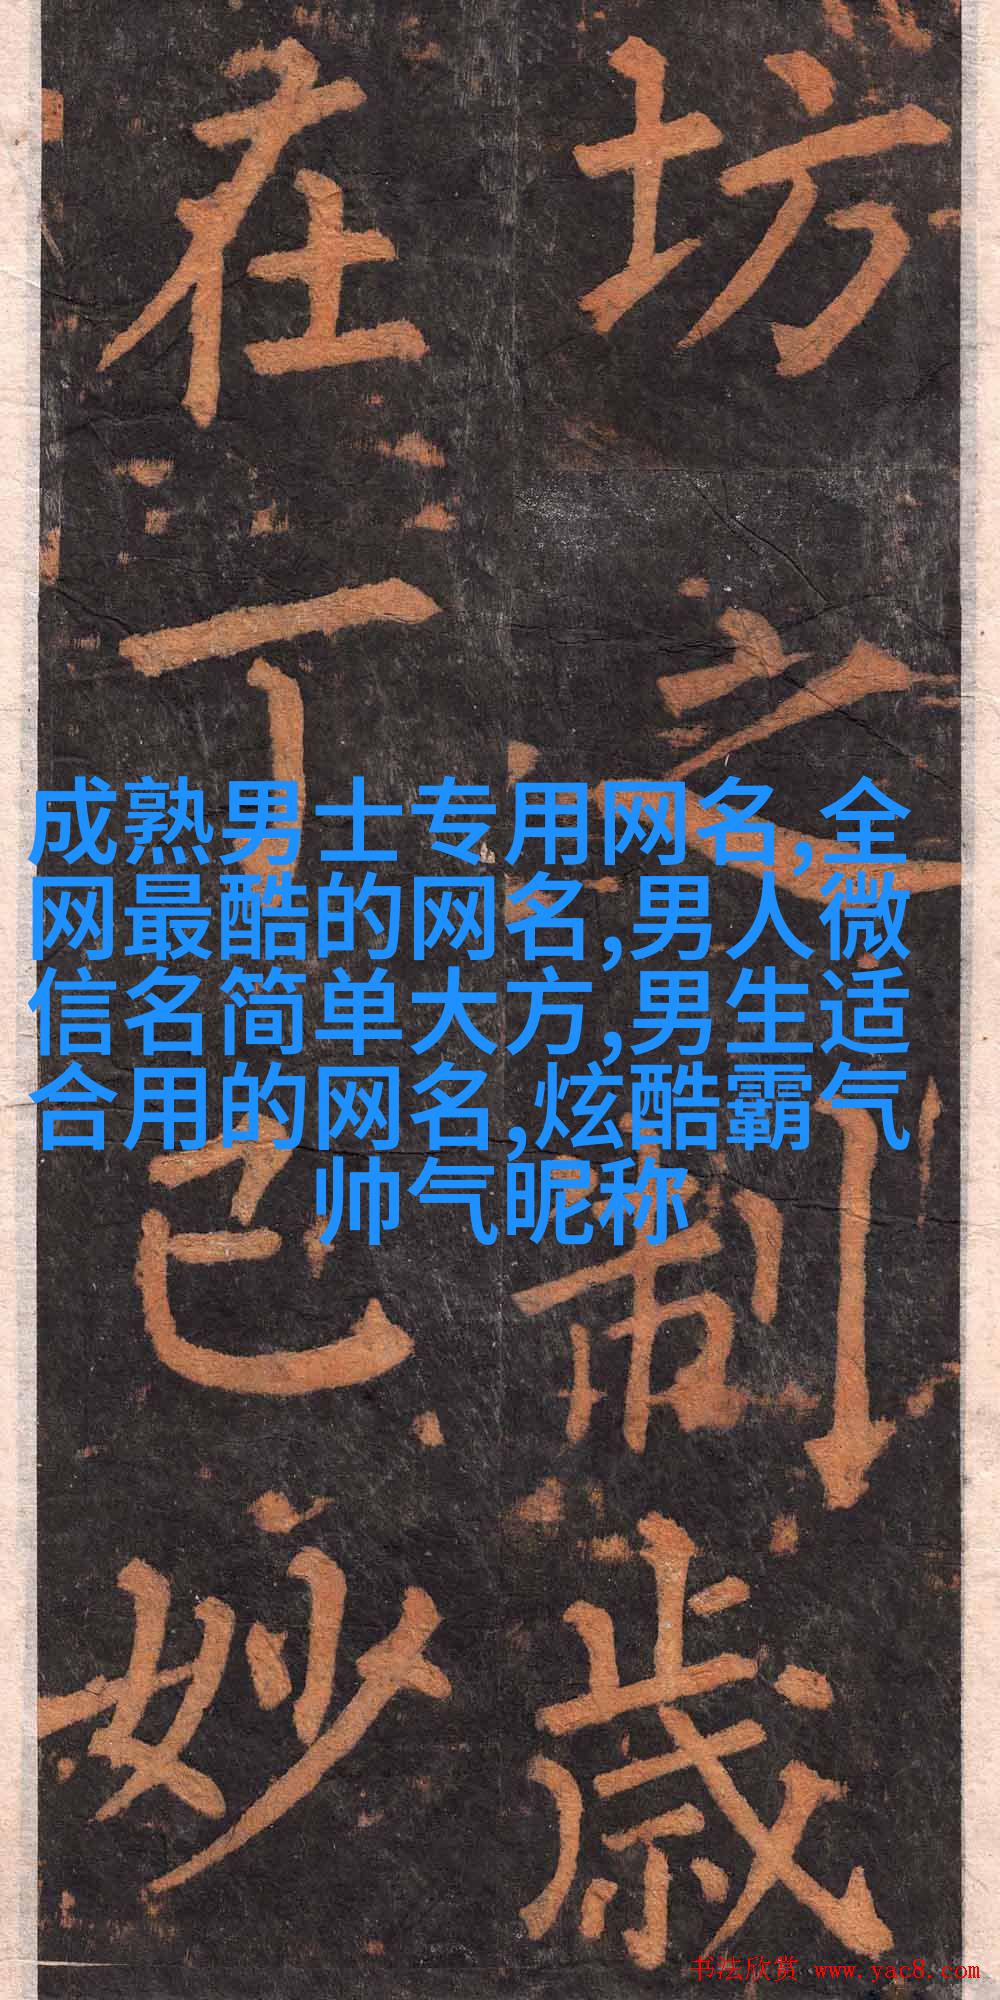 坊之制歲
在丁巳妙
成熟男士专用网名,全
网最酷的网名,男人微
信名简单大方,男生适
合用的网名,炫酷霸气
帅气昵称
书法欣赏 www.yac8.com